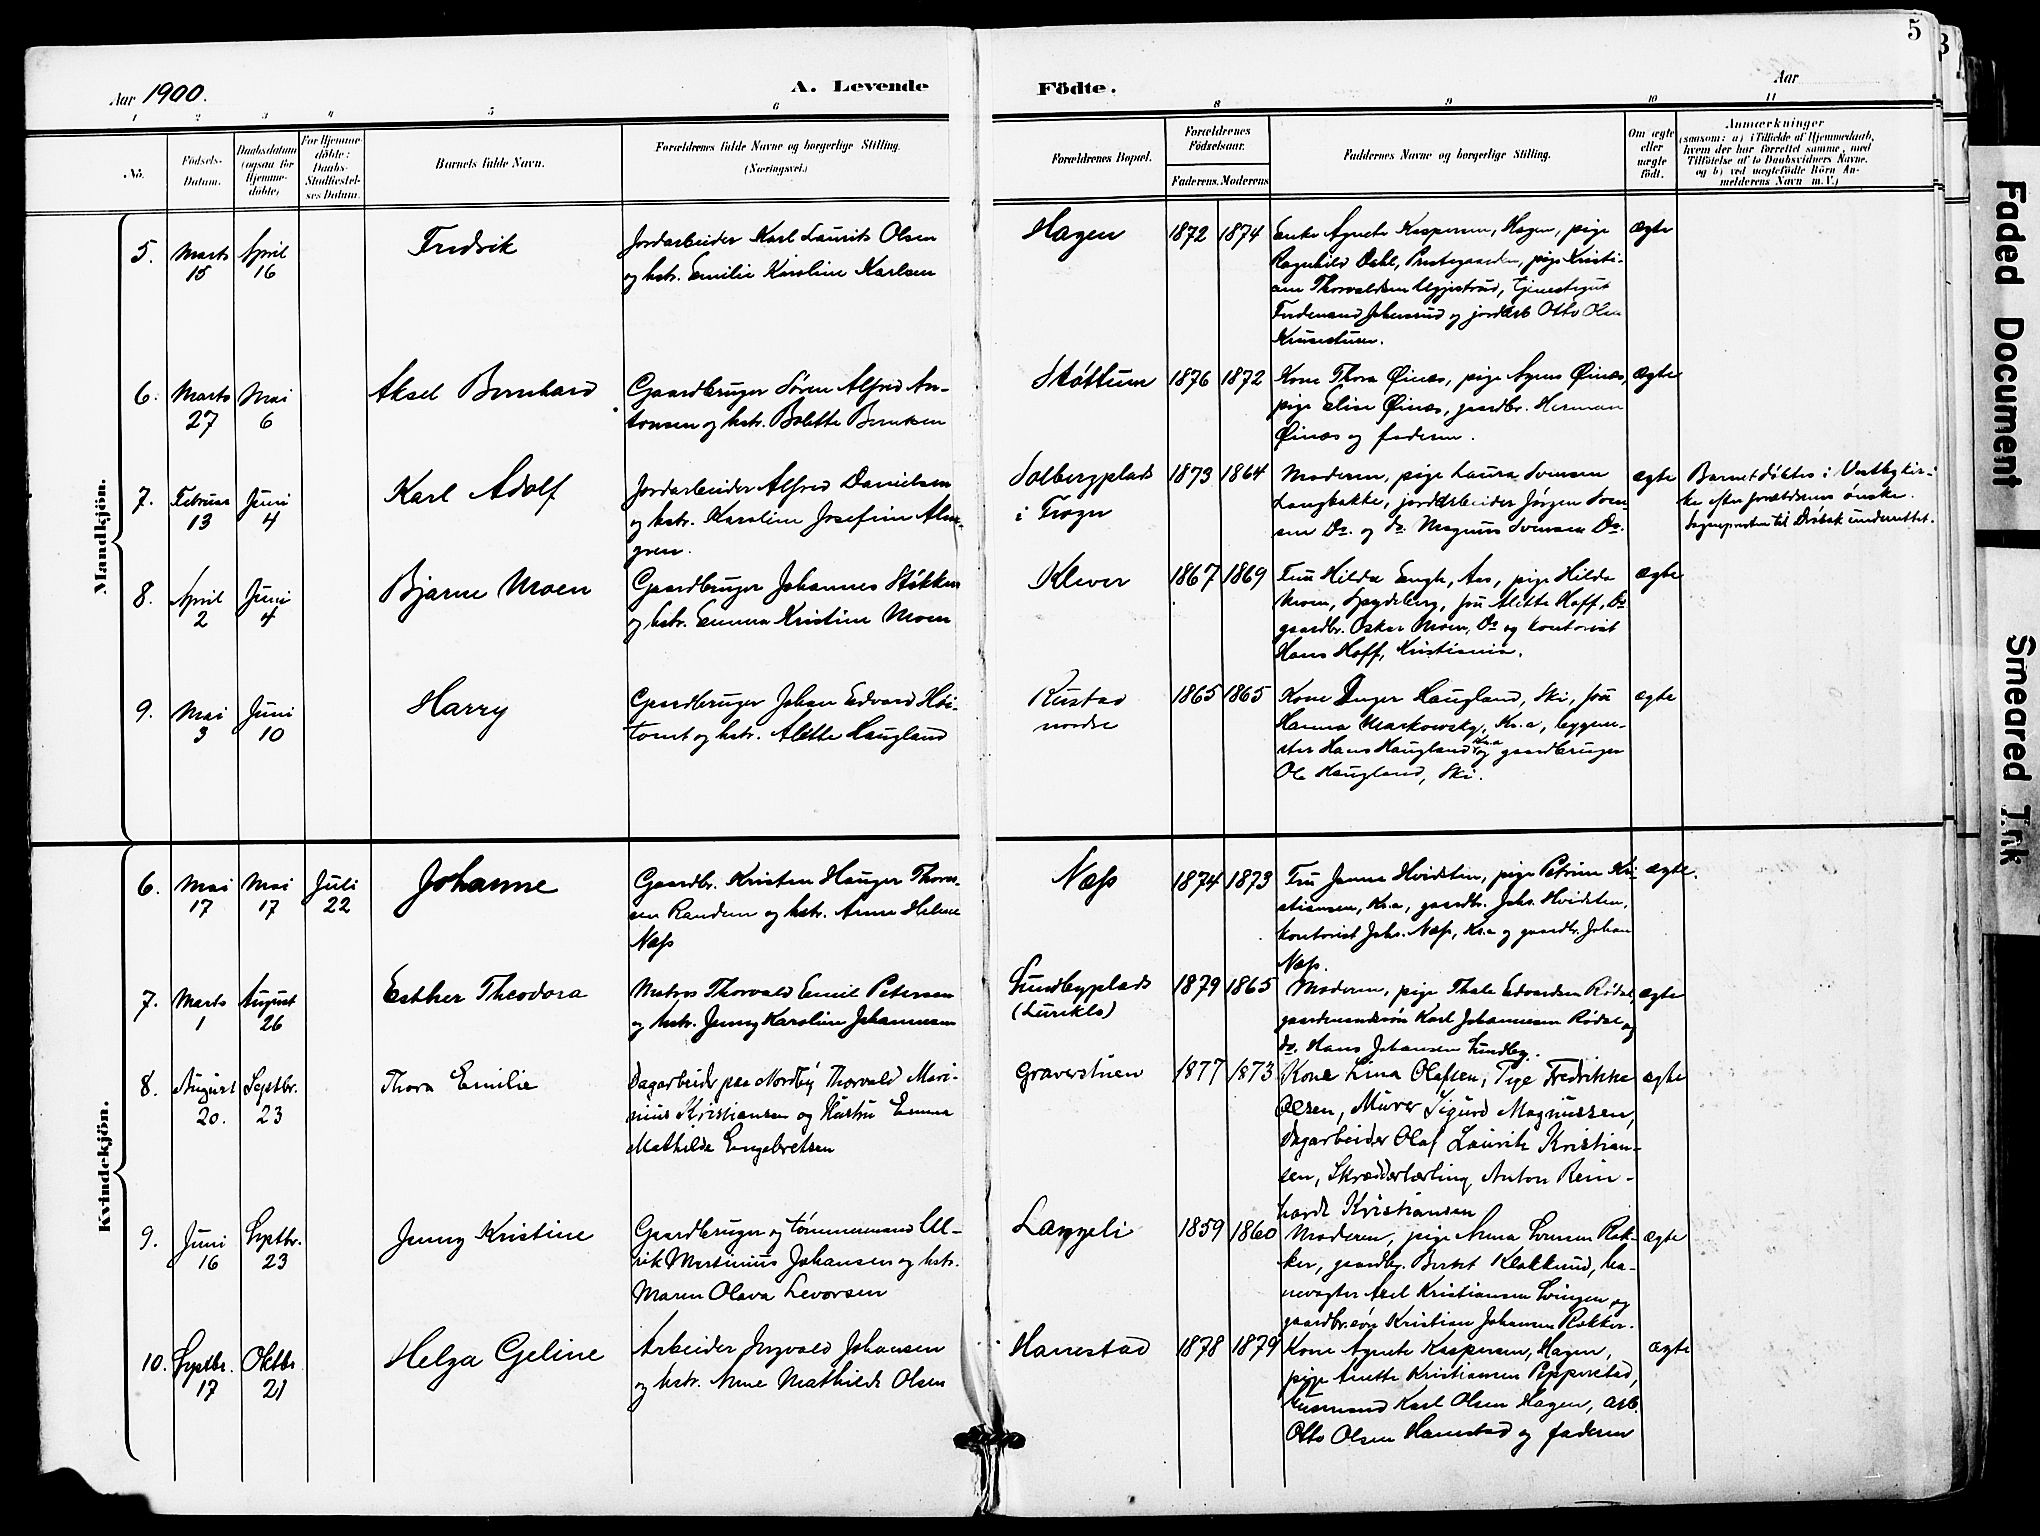 5
3
Aar 1900.
A. Levende
Födte.
Aar
1 2 3 4 5 6 8 9 10 11
No.
Födsels-
Datum.
Daabsdatum
(ogsaa for
Hjemme-
döbte)
For Hjemme-
döbte:
Daabs-
Stadfæstel-
ses Datum.
Barnets fulde Navn.
Forældrenes fulde Navne og borgerlige Stilling.
(Næringsvei.)
Forældrenes Bopæl.
Forældrenes
Födselsaar.
Faderens. Moderens
Faddernes Navne og borgerlige Stilling.
Om ægte
eller
uægte
födt.
Anmærkninger
(saasom: a) i Tilfælde af Hjemmedaab,
hvem der har forrettet samme, med
Tilföielse af to Daabsvidners Navne.
og b) ved uægtefödte Börn An-
melderens Navn m. V.)
Mandkjön.
5. Marts 15 April 16
Fredrik
Jordarbeider Karl Laurits Olsen
og hstr. Emilie Karoline Karlsen
Hagen
1872 1874
Enke Agnete Kaspersen, Hagen, pige
Ragnhild Dahl, Prestegaarden, pige Kristi-
ane Thorvaldsen
Ferdinand og jordarb Otto Olsen
ægte
6. Marts 27 Mai 6
Aksel Bernhard
Gaardbruger Søren Alfred An-
tonsen og hstr. Bolette Berntsen
Støttum
1876 1872
Kone Thora Øinæs, pige Agnes Øinæs,
pige Elise Øinæs, gaardbr. Herman
Øinæs og faderen.
ægte
7. Februar 13 Juni 4
Karl Adolf
Jordarbeider Alfred Danielsen
og hstr. Karoline Josefine Alm-
gren.
Solbergplads
i Frogn
1873 1864
Moderen, pige Laura Svensen
Langbakke, jordarbeider Jørgen Sven-
sen Do. og do. Magnus Svensen Do.
ægte
Barnet døbtes i Vestby kir-
ke efter forældrenes ønske.
Sognepresten til Drøbak underrettet.
8. April 2 Juni 4
Bjarne Moen
Gaardbruger Johannes Støkken
og hstr. Emma Kristine Moen
Klever
1867 1869
Fru Hilda Engh, Aas, pige Hilda
Moen, Spydeberg, frk Alette Hoff, Do
gaardbr. Oskar Moen, Do og kontorist
Hans Hoff, Kristiania.
ægte
9. Mai 3 Juni 10
Harry
Gaardbruger Johan Edvard Høi-
tomt og hstr. Alette Haugland
Rustad
nordre
1865 1865
Kone Inger Haugland, Ski, fru
Hanna Markowsky, Kr.a, bygme-
ster Hans Haugland Kr.a og gaardbruger
Ole Haugland, Ski.
ægte
Kvindekjön.
6. Mai 17 Mai 17 Juli 22
Johanne
Gaardbr. Kristen Hauger Thorer-
sen Randem og hstr. Anne Helene
Næss
Næss
1874 1873
Fru Janna Hvidsten, pige Petrine Kri-
stiansen, Kr.a, gaardbr. Johs. Hvidsten,
kontorist Johs. Næss, Kr.a og gaardbr. Johan
Næss.
ægte.
7. Marts 1 August 26
Esther Theodora
Matros Thorvald Emil Petersen
og hstr. Jenny Karoline Johannesen
Sundbyplads
1879 1865
Moderen, pige Thale Edvardsen Rødse,
gaardmandssøn Karl Johannesen Rødse og
do. Hans Johansen Sundby.
ægte
8. August 20. Septbr. 23
Thora Emilie
Dagarbeider paa Nordby Thorvald Mari-
nius Kristiansen og Hustru Emma
Mathilde Engebretsen
Graverstuen
1877 1873
Kone Lina Olafsen, Pige Fredrikke
Olsen, Murer Sigurd Magnussen,
Dagarbeider Olaf Lauritz Kristian-
sen, Skrædderlærling Anton Rein-
hardt Kristiansen
ægte
9. Juni 16 Septbr. 23
Jenny Kristine
Gaardbruger og tømmermand Ul-
rik Martinius Johansen og hstr.
Maren Olava Levorsen
Langeli
1859 1860
Moderen, pige Anna Svensen Rak-
ker, gaardbr. Berket Klokkund, ba-
nevogter Axel Kristiansen Svingen og
gaardbr.søn Kristian Johansen Rakker.
ægte
10. Septbr. 17 Oktbr. 21
Helga Geline
Arbeider Ingvald Johansen
og hstr. Anne Mathilde Olsen
Hanestad
1878 1879
Kone Agnete Kaspersen, Hagen,
pige Anette Kristiansen Pepperstad,
Husmand Karl Olsen Hagen, arb.
Otto Olsen Hanestad og faderen
ægte
Faded Document
Smeared Ink